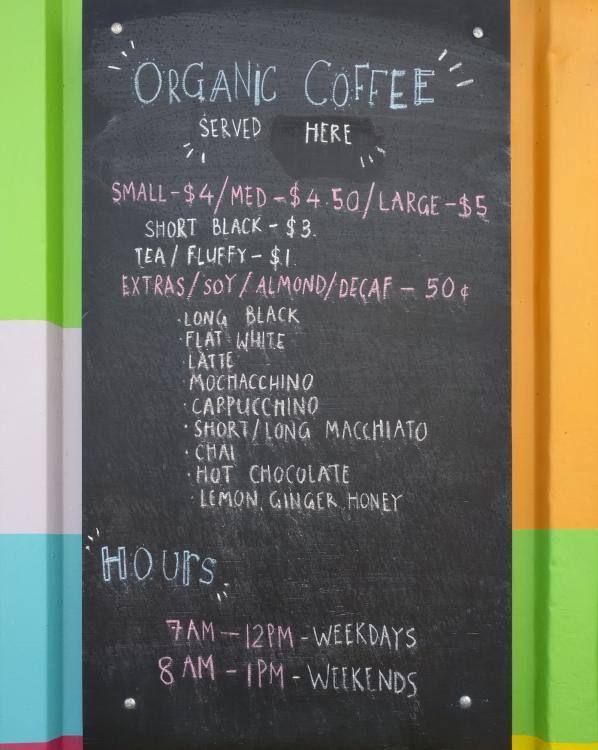 ORGANIC COFFEE
SERVED HERE
SMALL-$4/MED-$4.50/LARGE-$5
SHORT BLACK-$3.
TEA/FLUFFY-$1.
EXTRAS/SOY/ALMOND/DECAF-50¢
·LONG BLACK
·FLAT WHITE
·LATTE
·MOCHACCHINO
·CAPPUCCHINO
·SHORT/LONG MACCHIATO
·CHAI
·HOT CHOCOLATE
·LEMON, GINGER, HONEY
HOURS
7AM-12PM-WEEKDAYS
8AM-1PM-WEEKENDS